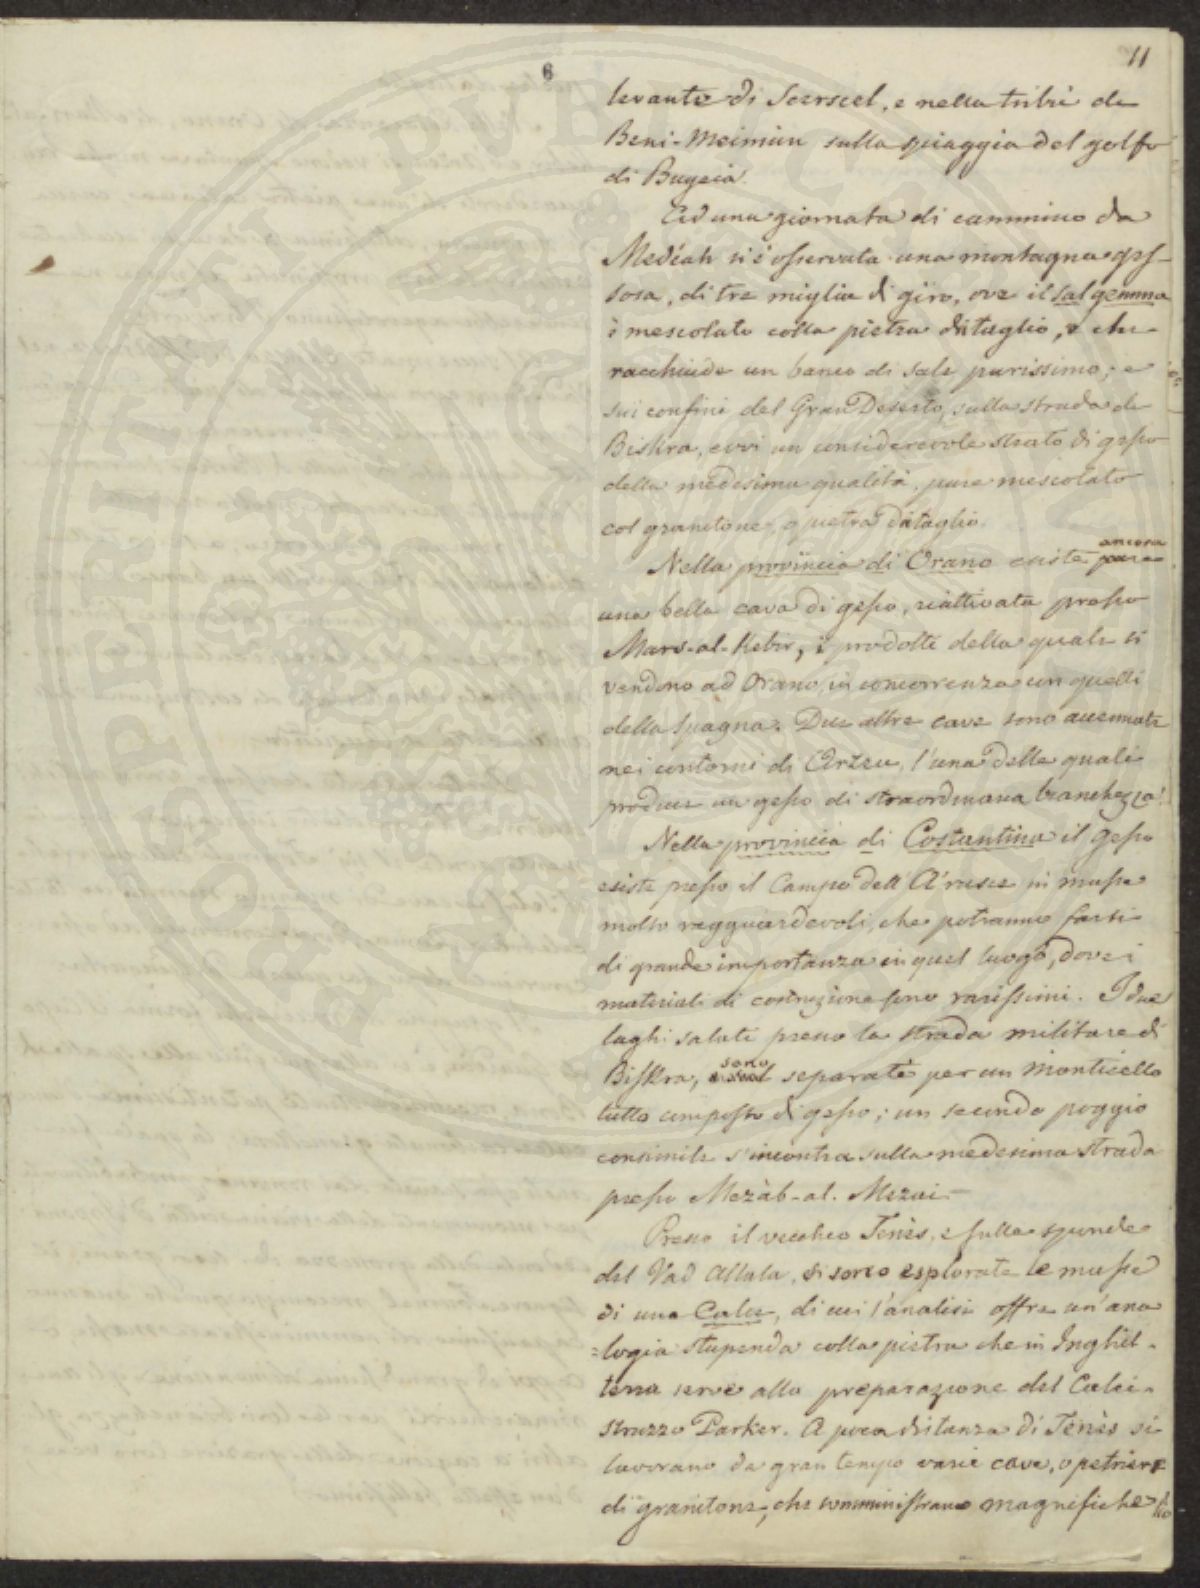 11
6
levante di Scerscel, e nella tribù de
Beni-Meimun sulla spiaggia del golfo
di Bugeia.
Ad una giornata di cammino da
Medéah si è osservata una montagna ges-
sosa, di tre miglia di giro, ove il sal gemma
è mescolato colla pietra da taglio, e che
racchiude un banco di sale purissimo; e
sui confini del Gran Deserto, sulla strada de
Biskra, evvi un considerevole strato di gesso
della medesima qualità, pure mescolato
col granitone, o pietra da taglio.
Nella provincia di Orano esiste pure ancora
una bella cava di gesso, riattivata presso
Mars-al-Kebir, i prodotti della quale si
vendono ad Orano, in concorrenza con quelli
della Spagna. Due altre cave sono accennate
nei contorni di Arzeu, l'una delle quali
produce un gesso di straordinaria bianchezza.
Nella provincia di Costantina il gesso
esiste presso il Campo dell' A'rusce in masse
molto ragguardevoli, che potranno farsi
di grande importanza in quel luogo, dove i
materiali di costruzione sono rarissimi. I due
laghi salati presso la strada militare di
Biskra, sono separati per un monticello
tutto composto di gesso; un secondo poggio
consimile s'incontra sulla medesima strada
presso Mezàb-al-Mezai.-
Presso il vecchio Tenès, e sulle sponde
del Vad Allala, si sono esplorate le masse
di una Calce, di cui l'analisi offre un'ana
=logia stupenda colla pietra che in Inghil-
terra serve alla preparazione del Calci-
struzzo Parker. A poca distanza di Tenès si
lavorano da gran tempo varie cave, o petriere
di granitone, che somministrano magnifiche